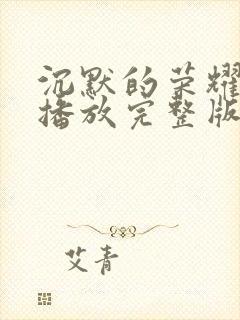 沉默的荣耀
播放完整版
艾青